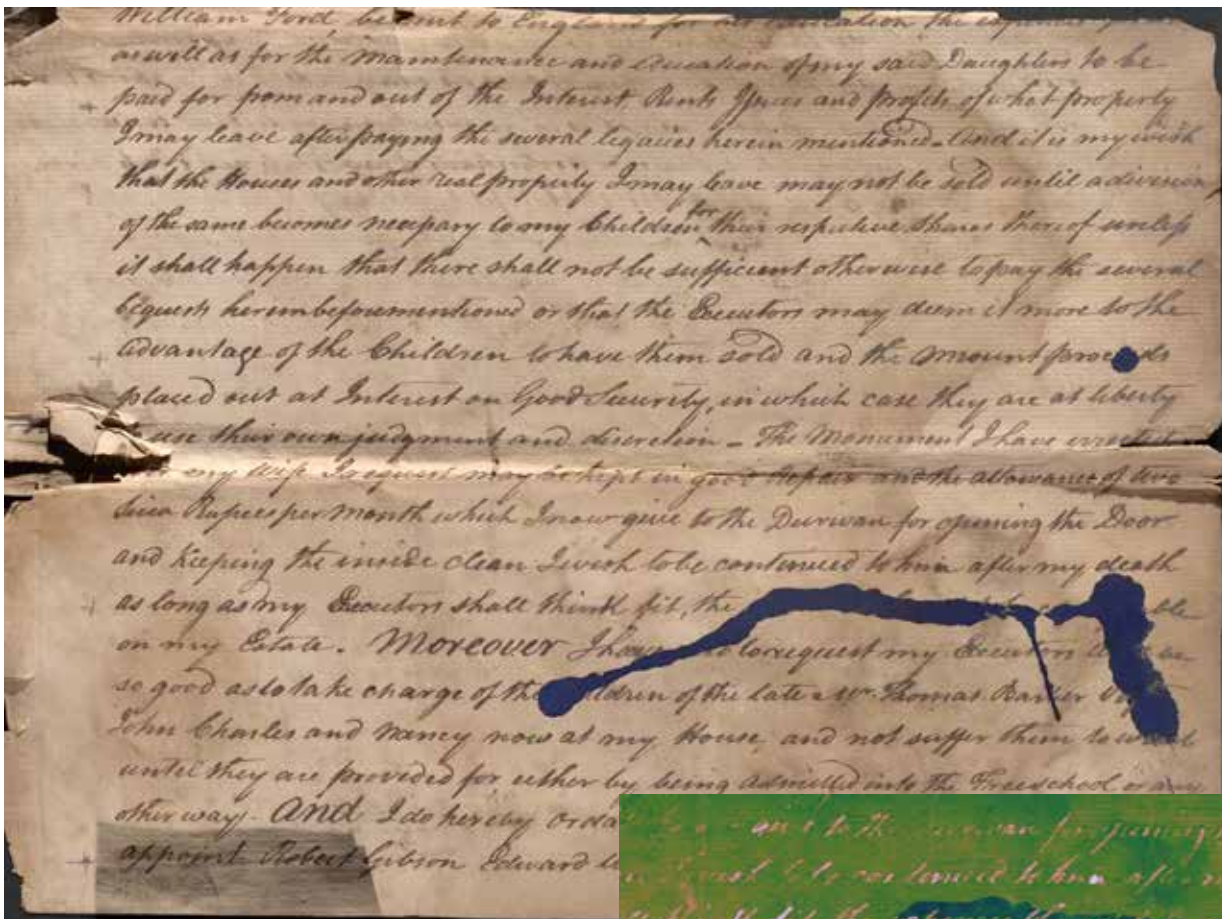 William Ford, be sent to England for his education the
as well as for the Maintenance and education of my said Daughters to be
paid for from and out of the Interest Rents Issues and profits of what property
I may leave after paying the several legacies herein mentioned. And it is my wish
that the Houses and other real property I may leave may not be sold until a division
of the same becomes necessary to my Children for their respective shares thereof unless
it shall happen that there shall not be sufficient otherwise to pay the several
bequests hereinbeforementioned or that the Executors may deem it more to the
advantage of the Children to have them sold and the amount
placed out at Interest on Good Security, in which case they are at liberty
use their own judgment and discretion – The Monument I have erected
my Wife I request may be kept in good Repair and the allowance of two
Sicca Rupees per Month which I now give to the Durwan for opening the Door
and Keeping the inside clean I wish to be continued to him after my death
as long as my Executors shall think fit, the
on my Estate. Moreover I to request my Executors
so good as to take charge of the of the late Mr. Thomas Barker
John Charles and Nancy now at my House, and not suffer them to
until they are provided for, either by being admitted into the Freeschool or any
other way. And I do hereby
appoint Robert Gibson Edward
to the for
to him after